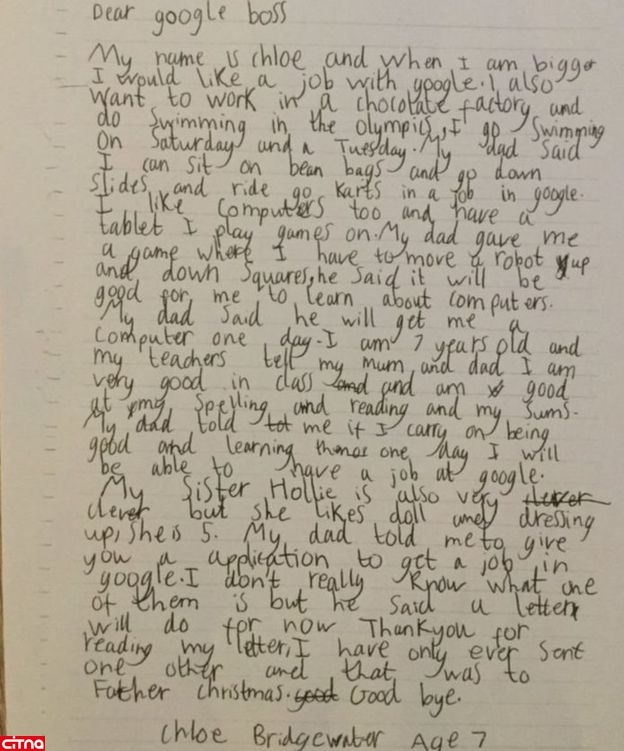 Dear google boss
My name is chloe and when I am bigger
I would like a job with google. I also
want to work in a chocolate factory and
do swimming in the olympics, I go swimming
on Saturday and a Tuesday. My dad said
I can sit on bean bags and go down
slides and ride go karts in a job in google.
I like computers too and have a
tablet I play games on. My dad gave me
a game where I have to move a robot up
and down squares, he said it will be
good for me to learn about computers.
My dad said he will get me a
computer one day. I am 7 years old and
my teachers tell my mum and dad I am
very good in class and and am good
at my spelling and reading and my sums.
My dad told me if I carry on being
good and learning one day I will
be able to have a job at google.
My Sister Hollie is also very clever
clever but she likes doll and dressing
up, she is 5. My dad told me to give
you a application to get a job in
google. I don't really know what one
of them is but he said a letter
will do for now Thankyou for
reading my letter, I have only ever sent
one other and that was to
Father christmas. good Good bye.
Chloe Bridgewater Age 7
CITNA